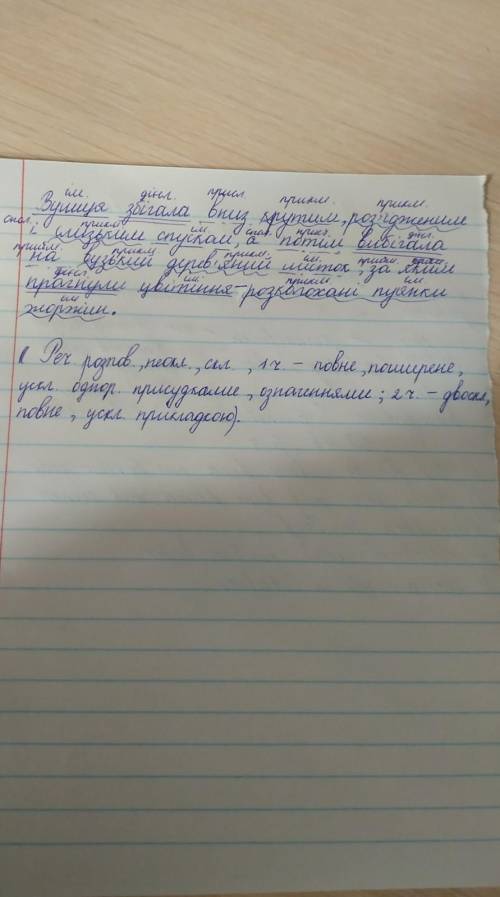 ім. дієсл. присл. прикм. прикм.
Вулиця збігала вниз крутим, роз'їдженим
спол. прикм. ім. спол. присл. дієсл.
і слизьким спуском, а потім вибігала
прийм. прикм. прикм. ім. прийм.
на вузький дерев'яний місток, за яким
дієсл. ім. прикм. ім.
прагнули цвітіння розкохані пуянки
ім.
жоржин.
( Реч. розпов., неокл., скл., 1 ч. – повне, поширене,
ускл. однор. присудками, означеннями; 2 ч. – двоскл,
повне, ускл. прикладкою).